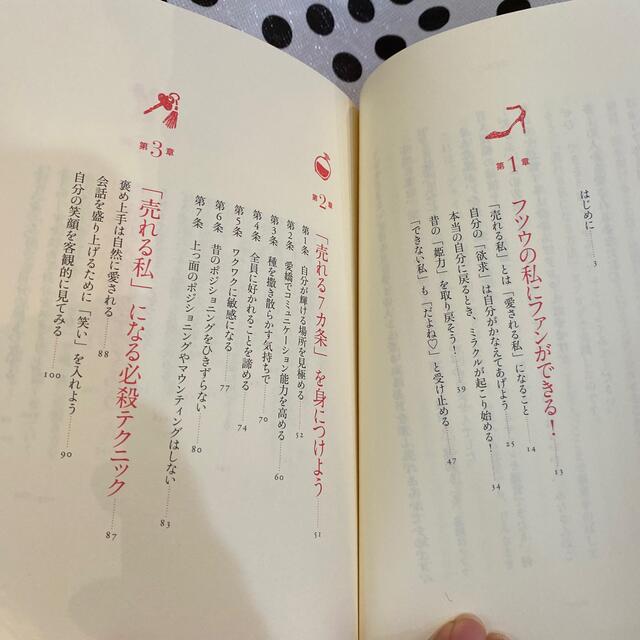 はじめに 3
第1章
フツウの私にファンができる! 13
「売れる私」とは「愛される私」になること 14
自分の「欲求」は自分がかなえてあげよう 25
本当の自分に戻るとき、ミラクルが起こり始める! 34
昔の「姫力」を取り戻そう! 39
「できない私」も「だよね♡」と受け止める 47
第2章
「売れる7カ条」を身につけよう 51
第1条 自分が輝ける場所を見極める 52
第2条 愛嬌でコミュニケーション能力を高める 60
第3条 種を撒き散らかす気持ちで 70
第4条 全員に好かれることを諦める 74
第5条 ワクワクに敏感になる 77
第6条 昔のポジショニングをひきずらない 80
第7条 上っ面のポジショニングやマウンティングはしない 83
第3章
「売れる私」になる必殺テクニック 87
褒め上手は自然に愛される 88
会話を盛り上げるために「笑い」を入れよう 90
自分の笑顔を客観的に見てみる 100